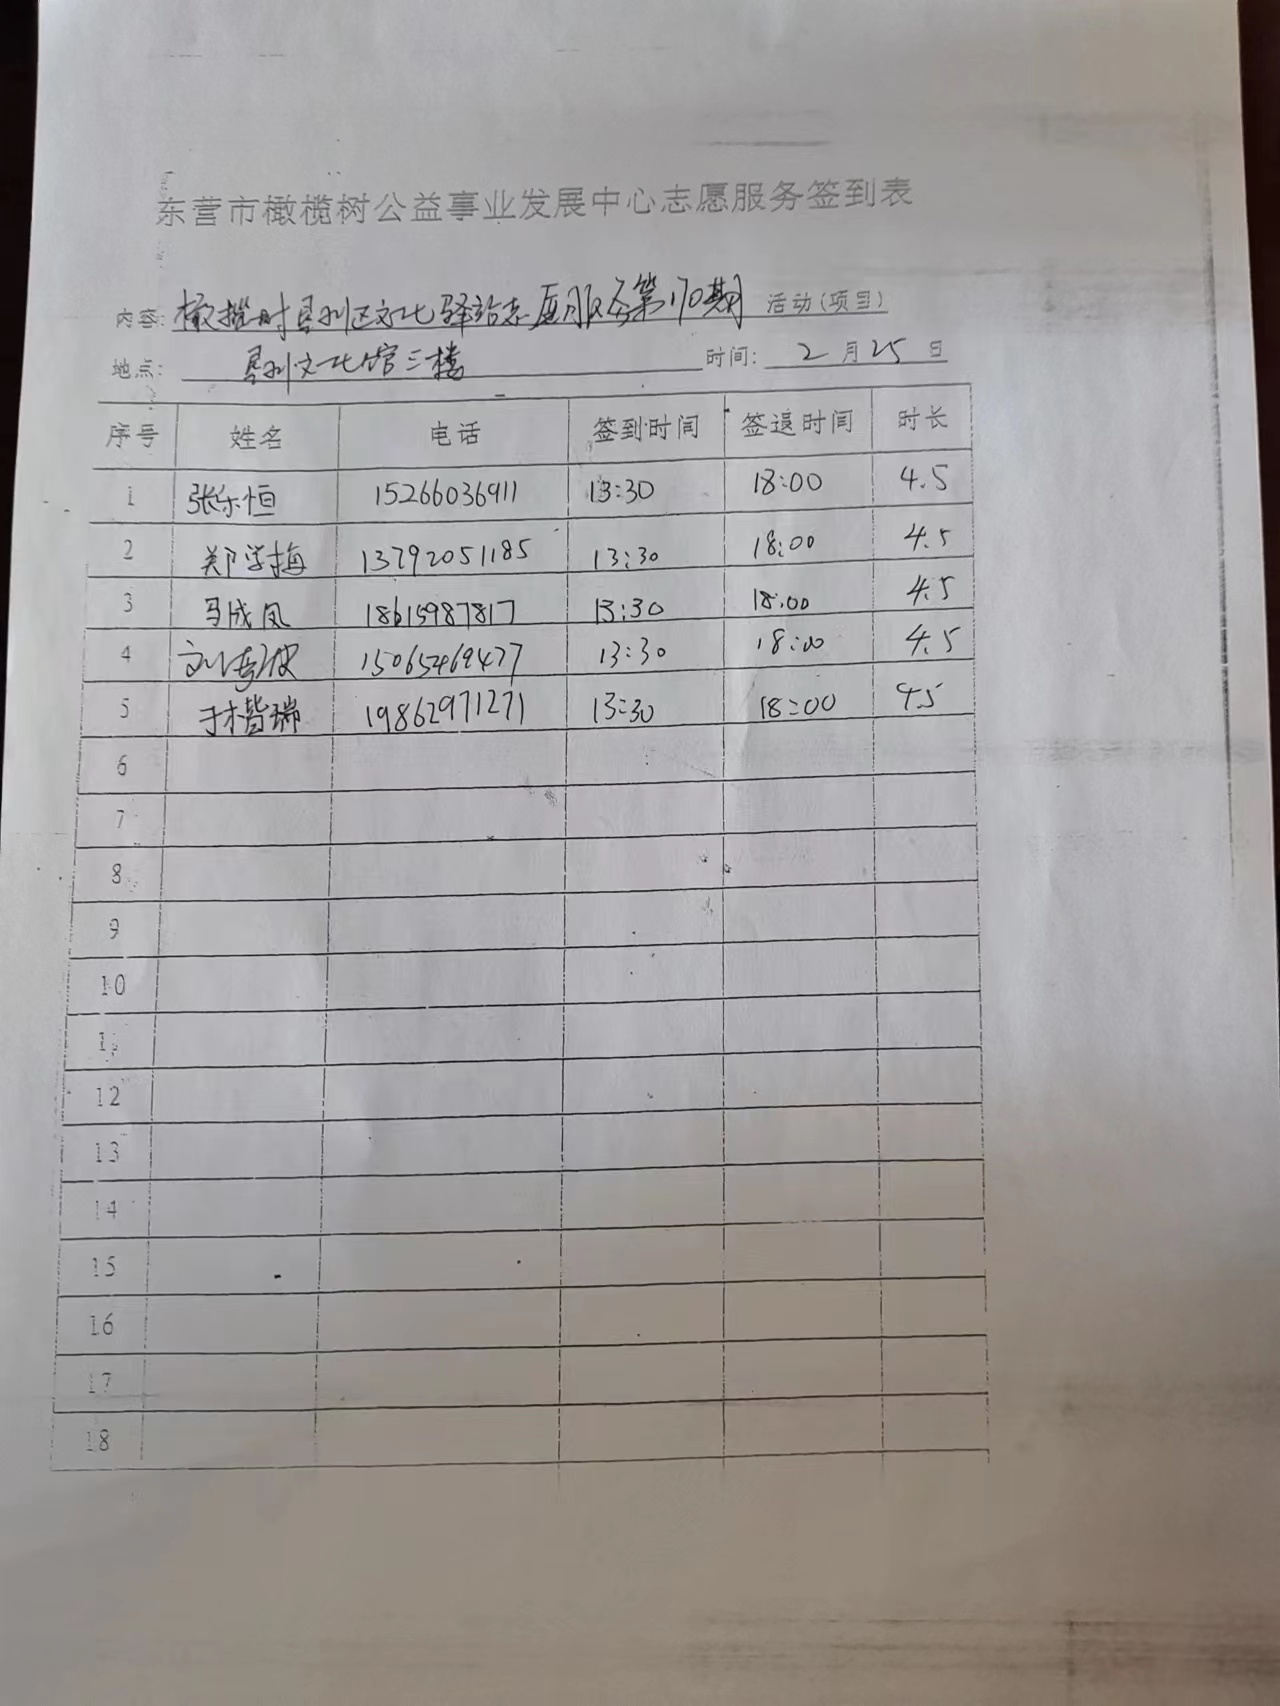 东营市橄榄树公益事业发展中心志愿服务签到表
内容: 橄榄树垦利区文化驿站志愿服务第170期 活动(项目)
地点: 垦利文化馆三楼 时间: 2月25日
序号 姓名 电话 签到时间 签退时间 时长
1 张乐恒 15266036911 13:30 18:00 4.5
2 郑学梅 13792051185 13:30 18:00 4.5
3 马成凤 18615987817 13:30 18:00 4.5
4 15065469477 13:30 18:00 4.5
5 于楷瑞 19862971271 13:30 18:00 4.5
6
7
8
9
10
11
12
13
14
15
16
17
18